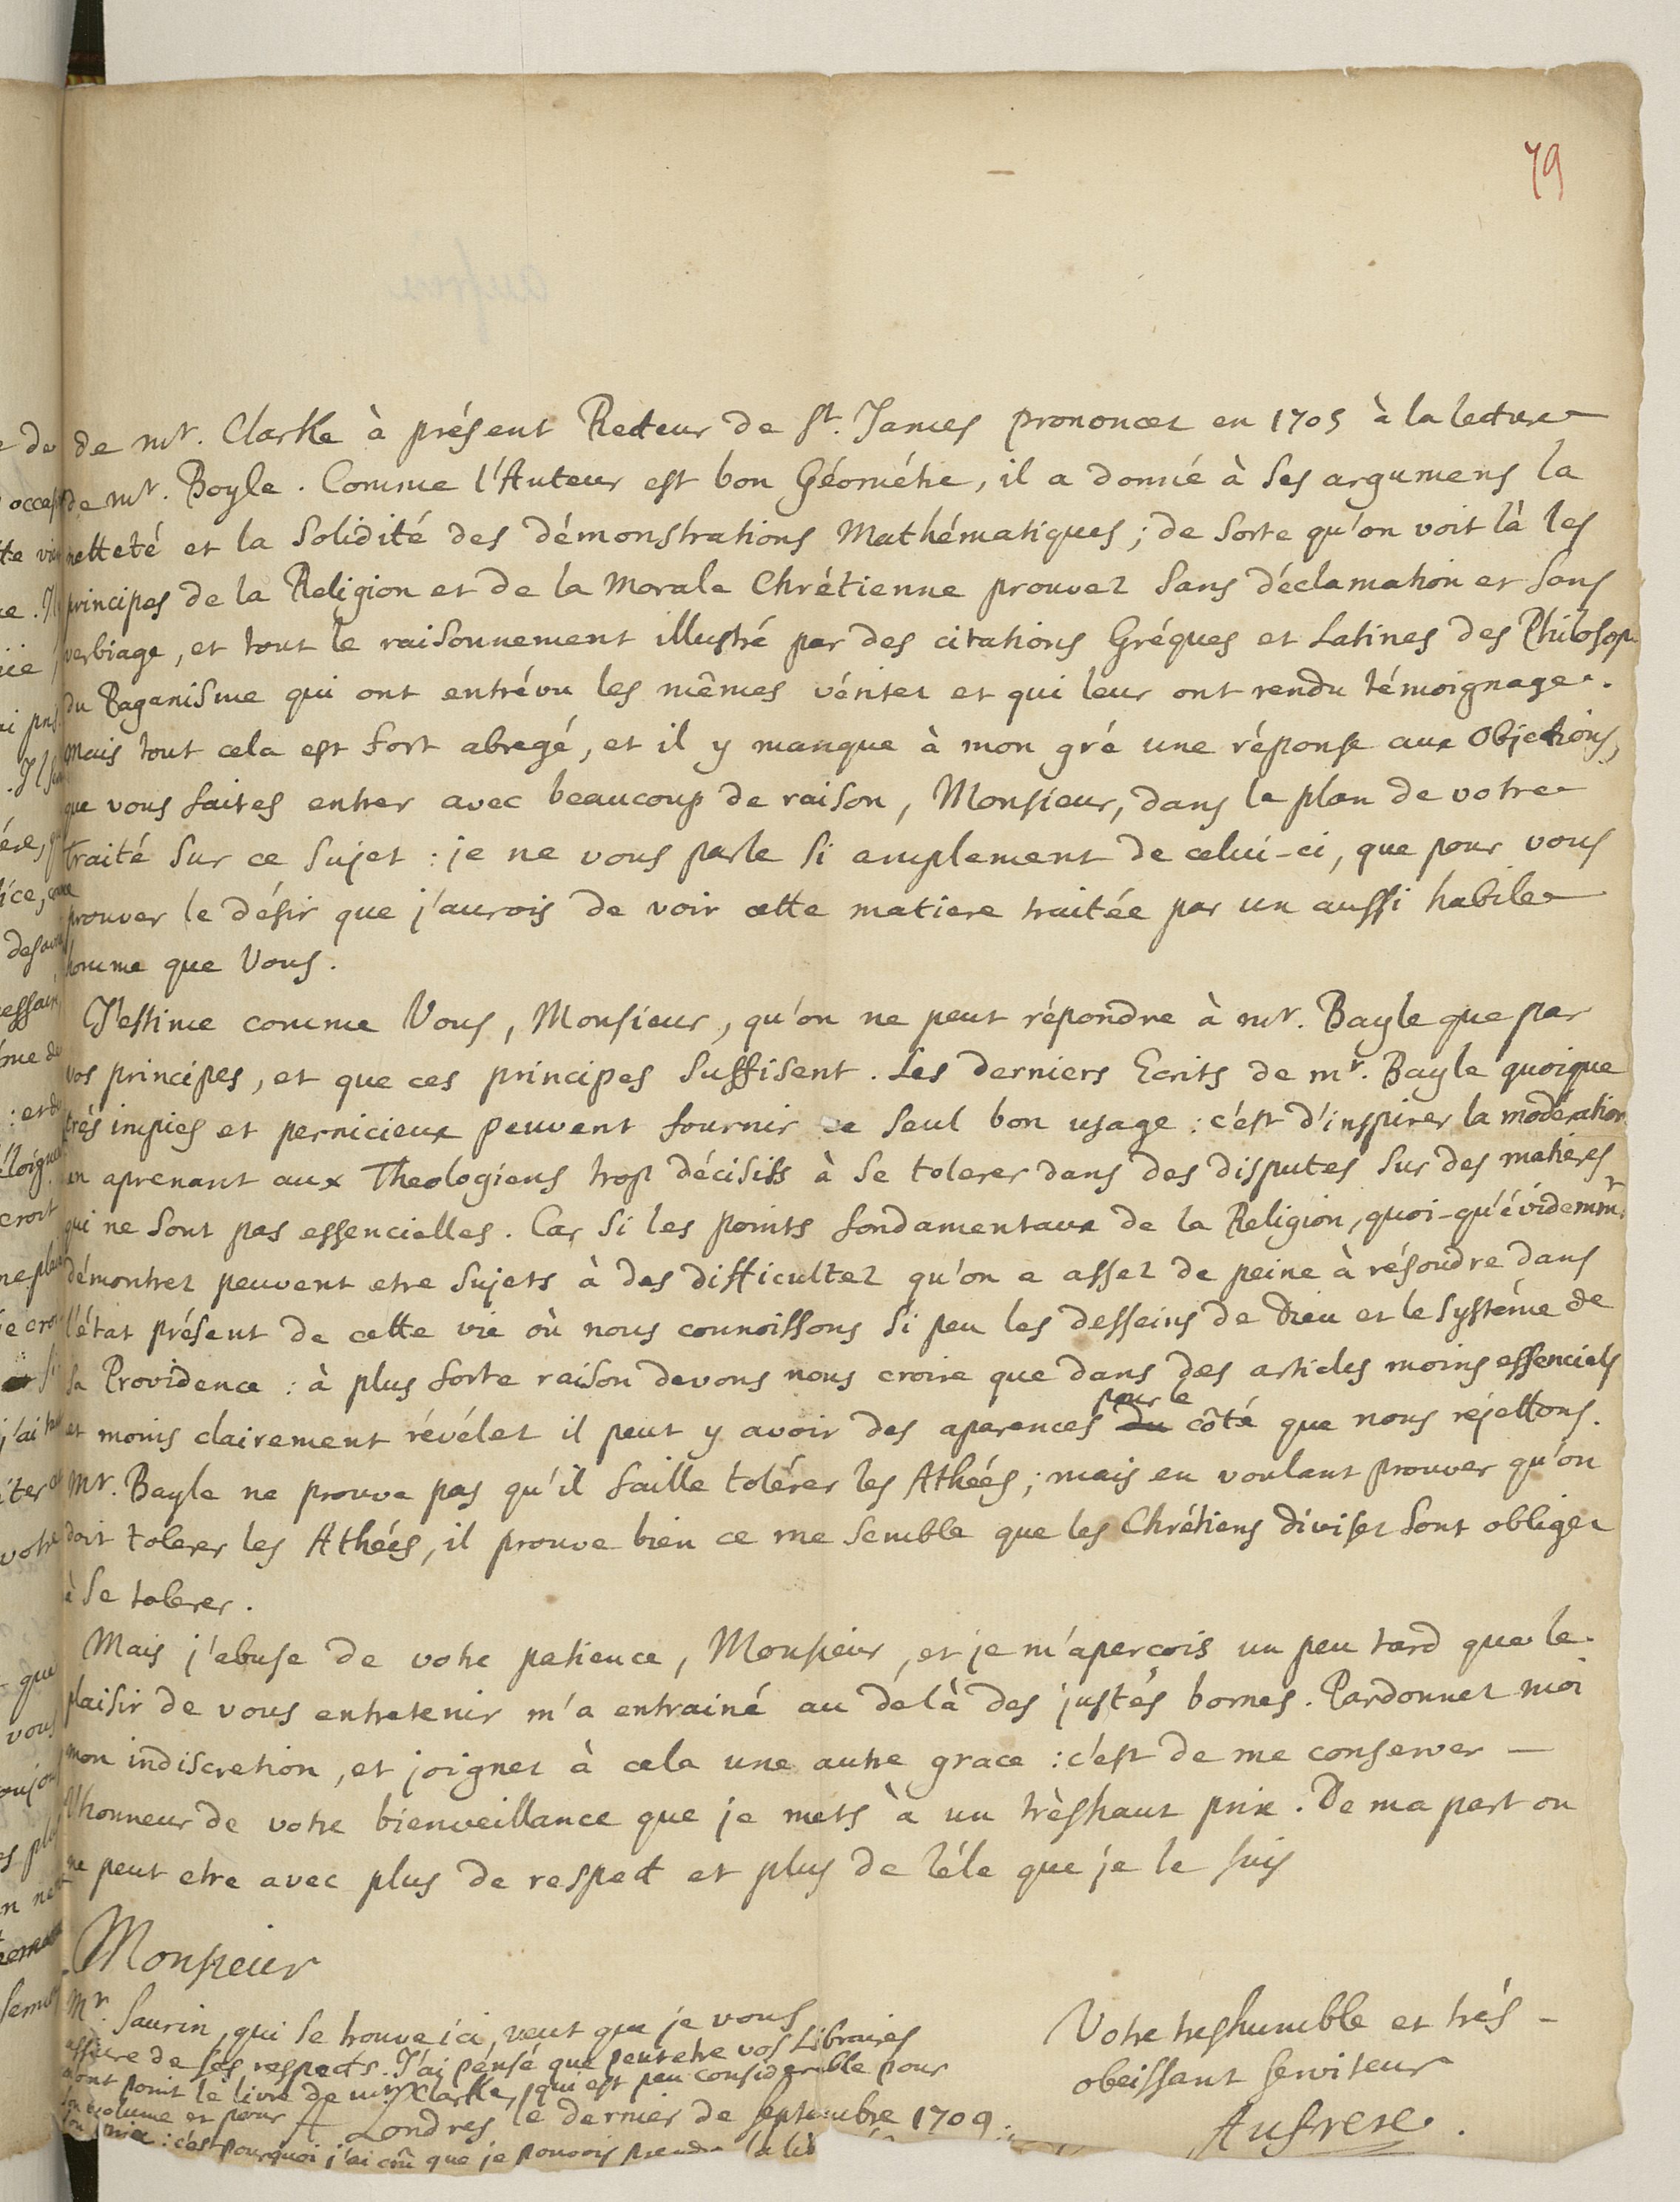 79
de mr. Clarke à présent Recteur de St. James prononcez en 1705 à la lecture
de mr. Boyle. Comme l'Auteur est bon Géométre, il a donné à ses argumens la
netteté et la solidité des démonstrations Mathématiques; de sorte qu'on voit là les
principes de la Religion et de la Morale Chrétienne prouvez sans déclamation et sans
verbiage, et tout le raisonnement illustré par des citations Gréques et Latines des Philosop.
du Paganisme qui ont entrévu les mêmes véritez et qui leur ont rendu témoignage.
Mais tout cela est fort abregé, et il y manque à mon gré une réponse aux Objections,
que vous faites entrer avec beaucoup de raison, Monsieur, dans le plan de votre
traité sur ce sujet : je ne vous parle si amplement de celui-ci, que pour vous
prouver le désir que j'aurois de voir cette matiere traitée par un aussi habile
homme que Vous.
J'estime comme Vous, Monsieur, qu'on ne peut répondre à mr. Bayle que par
vos principes, et que ces principes suffisent. Les derniers Ecrits de mr. Bayle quoique
trés impies et pernicieux peuvent fournir ce seul bon usage : c'est d'inspirer la modération
en aprenant aux Theologiens trop décisifs à se tolerer dans des disputes sur des matieres
qui ne sont pas essencielles. Car si les points fondamentaux de la Religion, quoi-qu'évidemmt.
démontrez peuvent etre sujets à des difficultez qu'on a assez de peine à résoudre dans
l'état présent de cette vie où nous connoissons si peu les desseins de Dieu et le systéme de
sa Providence : à plus forte raison devons nous croire que dans des articles moins essenciels
et moins clairement révélez il peut y avoir des aparences du pour le côté que nous rejettons.
Mr. Bayle ne prouve pas qu'il faille tolérer les Athées; mais en voulant prouver qu'on
doit tolerer les Athées, il prouve bien ce me semble que les Chrétiens divisez sont obligez
à se tolerer.
Mais j'abuse de votre patience, Monsieur, et je m'apercois un peu tard que le
plaisir de vous entretenir m'a entrainé au delà des justes bornes. Pardonnez moi
mon indiscretion, et joignez à cela une autre grace : c'est de me conserver —
l'honneur de votre bienveillance que je mets à un trèshaut prix. De ma part on
ne peut etre avec plus de respect et plus de zéle que je le suis
Monsieur
Votre treshumble et trés -
obeissant serviteur
Aufrere.
Mr. Saurin, qui se trouve ici, veut que je vous
assure de ses respects. J'ai pensé que peutetre vos Libraires
n'ont point le livre de mr. Clarke, qui est peu considerable pour
son volume et pour
son prix : c'est pourquoi j'ai crû que je pouvois prendre la
A Londres le dernier de septembre 1709.